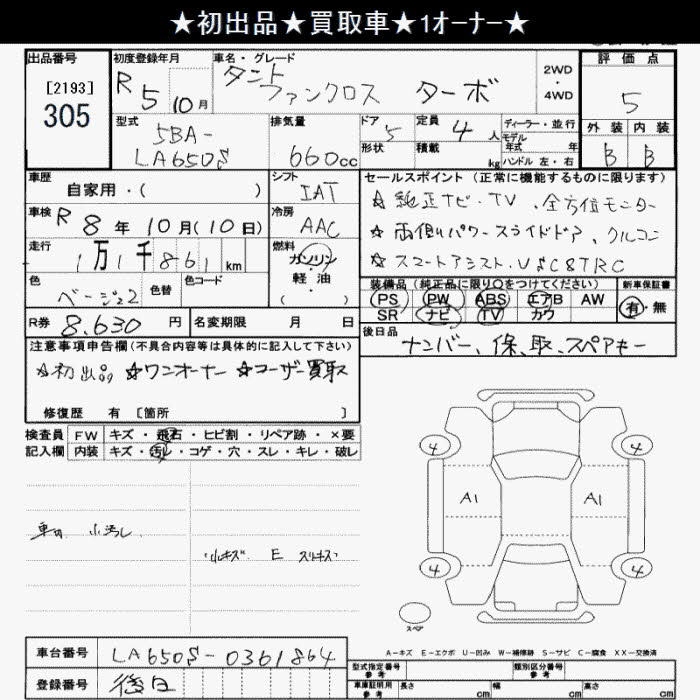 ★初出品★買取車★1オーナー★
出品番号 [2193] 305
初度登録年月 R 5年 10月
車名・グレード タント ファンクロス ターボ
2WD・4WD
評価点 5
型式 5BA-LA650S
排気量 660cc
ドア 5
形状
定員 4人
積載 kg
ディーラー・並行
モデル年式 年
ハンドル 左・右
外装 B 内装 B
車歴 自家用・( )
シフト IAT
セールスポイント (正常に機能するものに限ります)
車検 R 8年 10月(10日)
冷房 AAC
★ 純正ナビ・TV、全方位モニター
★ 両側パワースライドドア、クルコン
★ スマートアシスト・VSC&TRC
走行 1万1千861km
燃料 ガソリン・軽油 ( )
色 ベージュ2
色替
色コード
装備品 (純正品に限り○をつけてください)
新車保証書 有・無
PS PW ABS エアB AW
SR ナビ TV カワ
R券 8,630円
名変期限 月 日
後日品 ナンバー、保、取、スペアキー
注意事項申告欄(不具合内容等は具体的に記入して下さい)
★初出品 ★ワンオーナー ★ユーザー買取
修復歴 有 [箇所 ]
検査員記入欄
FW キズ・飛石・ヒビ割・リペア跡・×要
内装 キズ・汚レ・コゲ・穴・スレ・キレ・破レ
車内 小汚レ
小キズ E スリキズ
4 4
A1 A1
4 4
スペア
A-キズ E-エクボ U-凹み W-補修跡 S-サビ C-腐食 XX-交換済
車台番号 LA650S-0361864
登録番号 後日
型式指定番号 参考
類別区分番号 参考
車庫証明用 参考 長さ cm 幅 cm 高さ cm